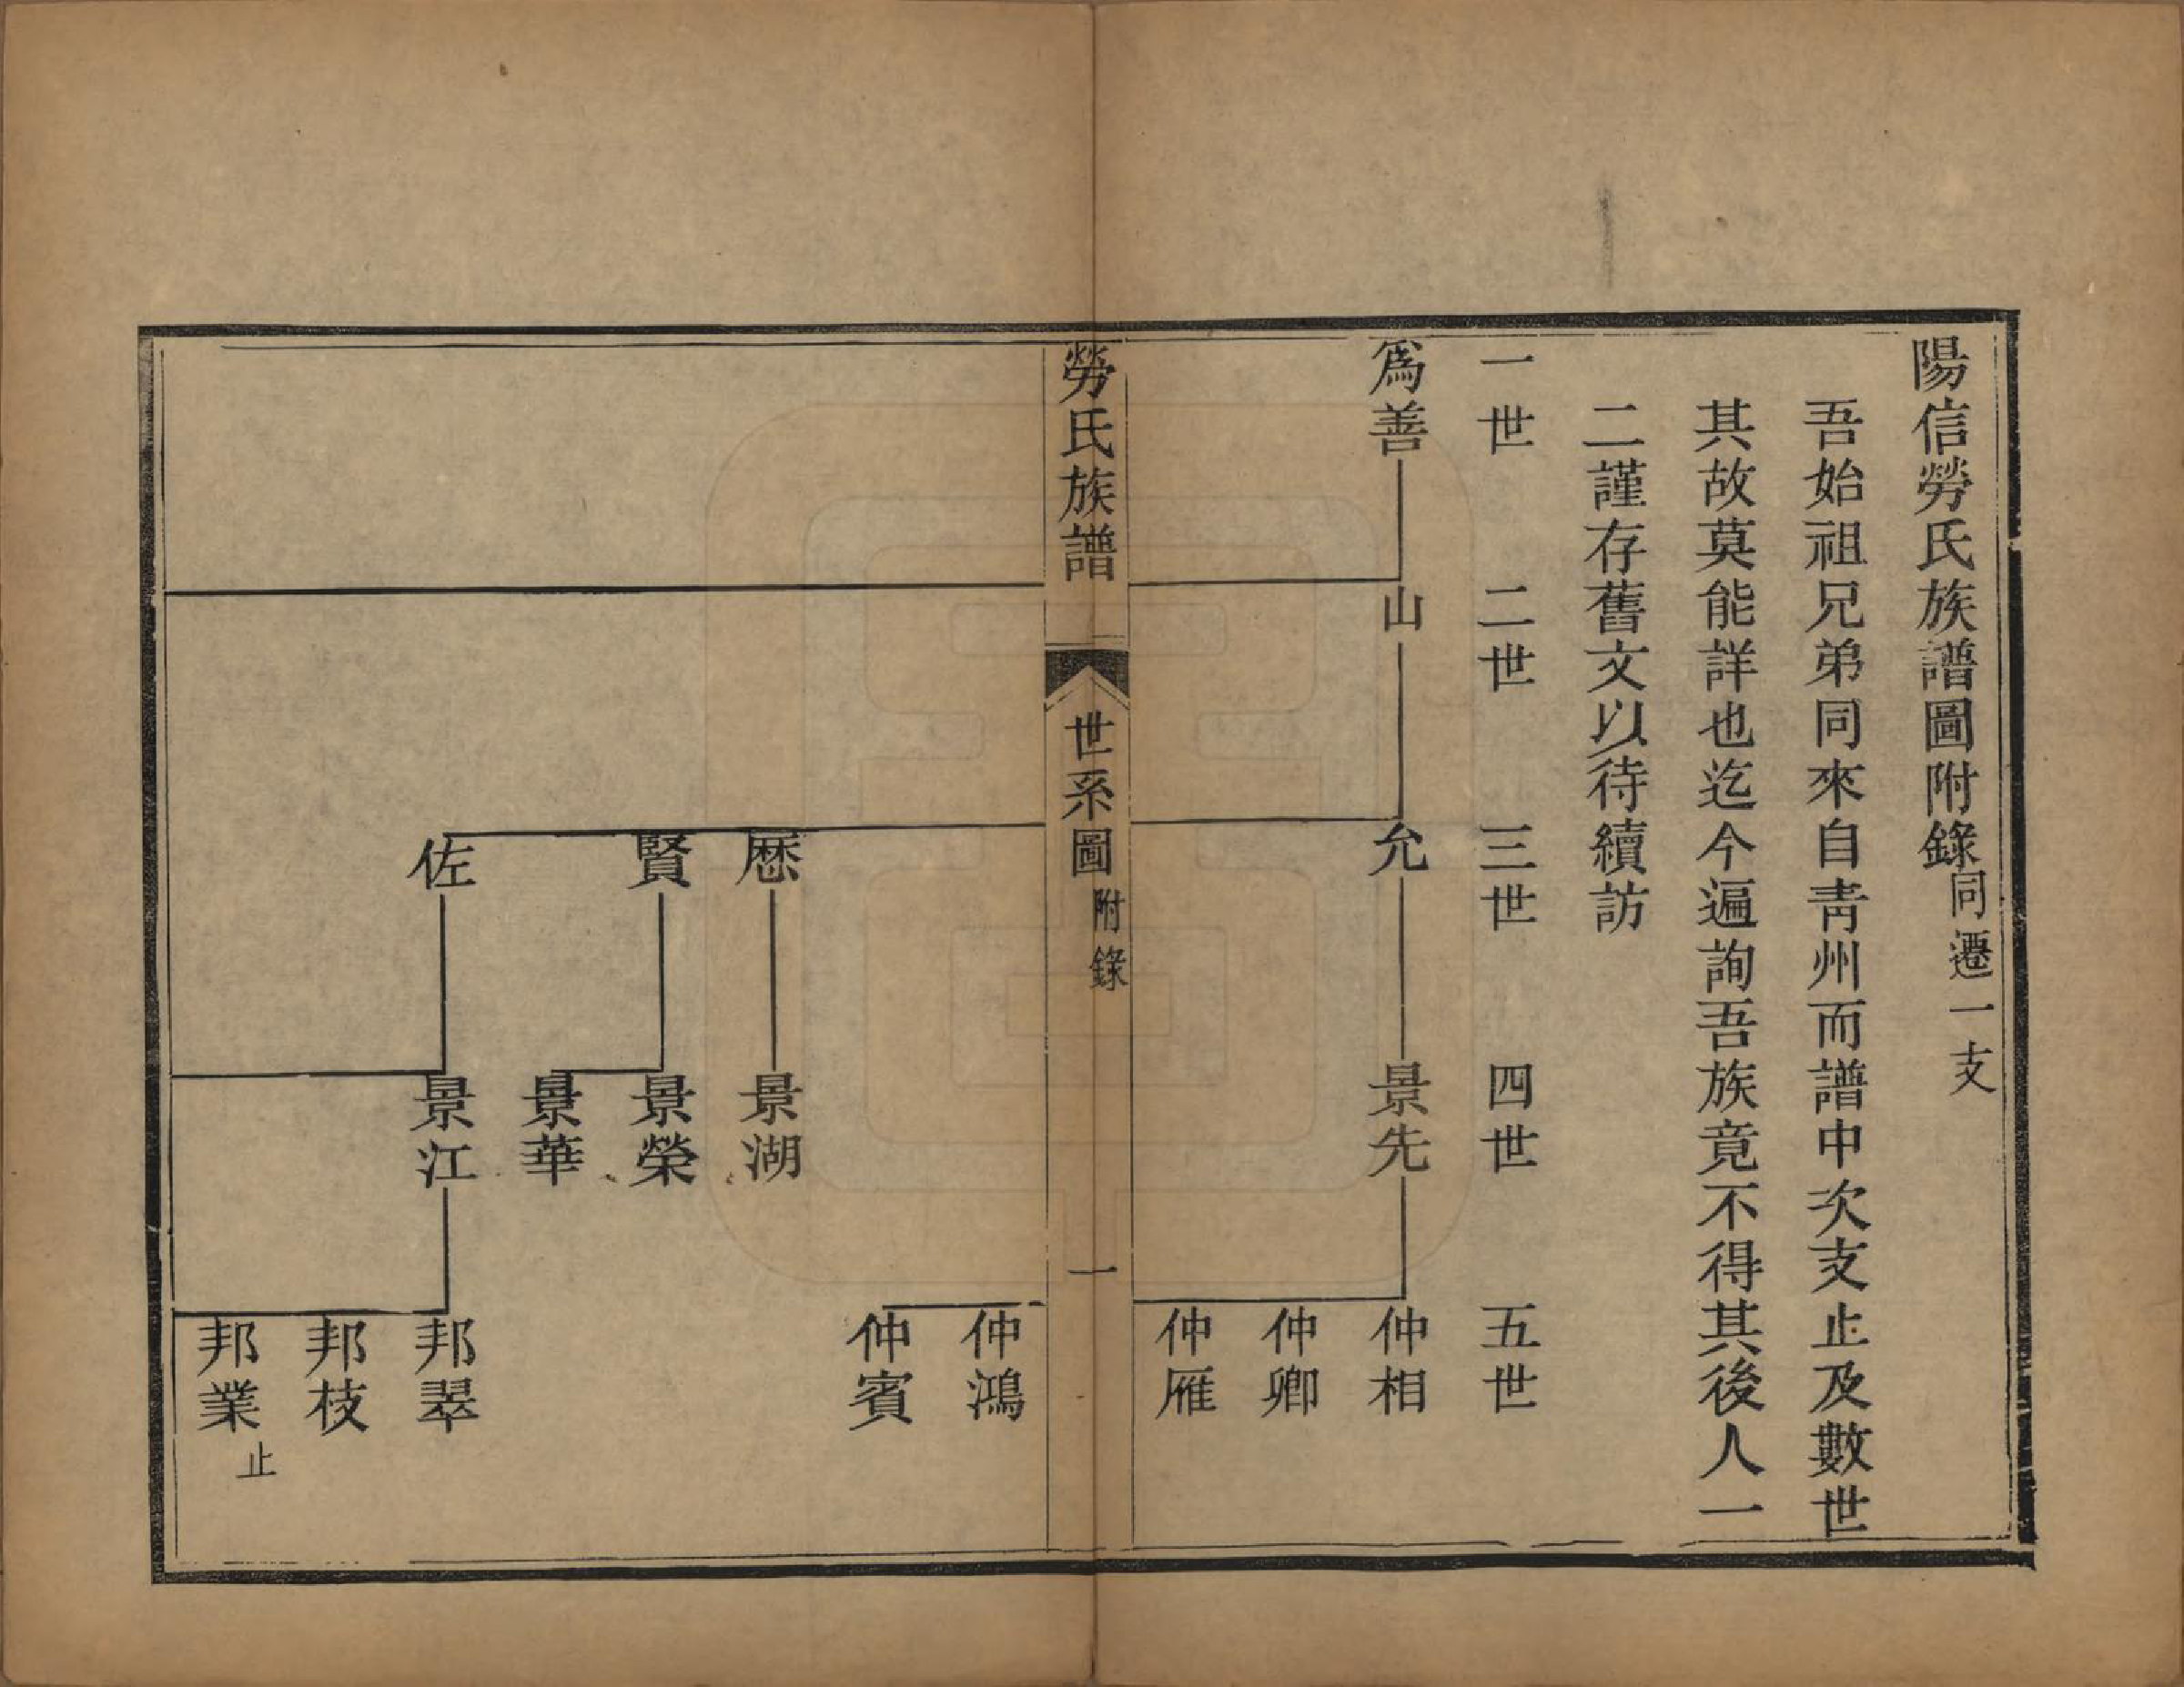 陽信勞氏族譜圖附錄同遷一支
吾始祖兄弟同來自青州而譜中次支止及數世
其故莫能詳也迄今遍詢吾族竟不得其後人一
二謹存舊文以待續訪
一世 二世 三世 四世 五世
爲善 山 允 景先 仲相
仲卿
仲雁
勞氏族譜 世系圖附錄 一
仲鴻
仲賓
歷 景湖
賢 景榮
景華
佐 景江 邦翠
邦枝
邦業止